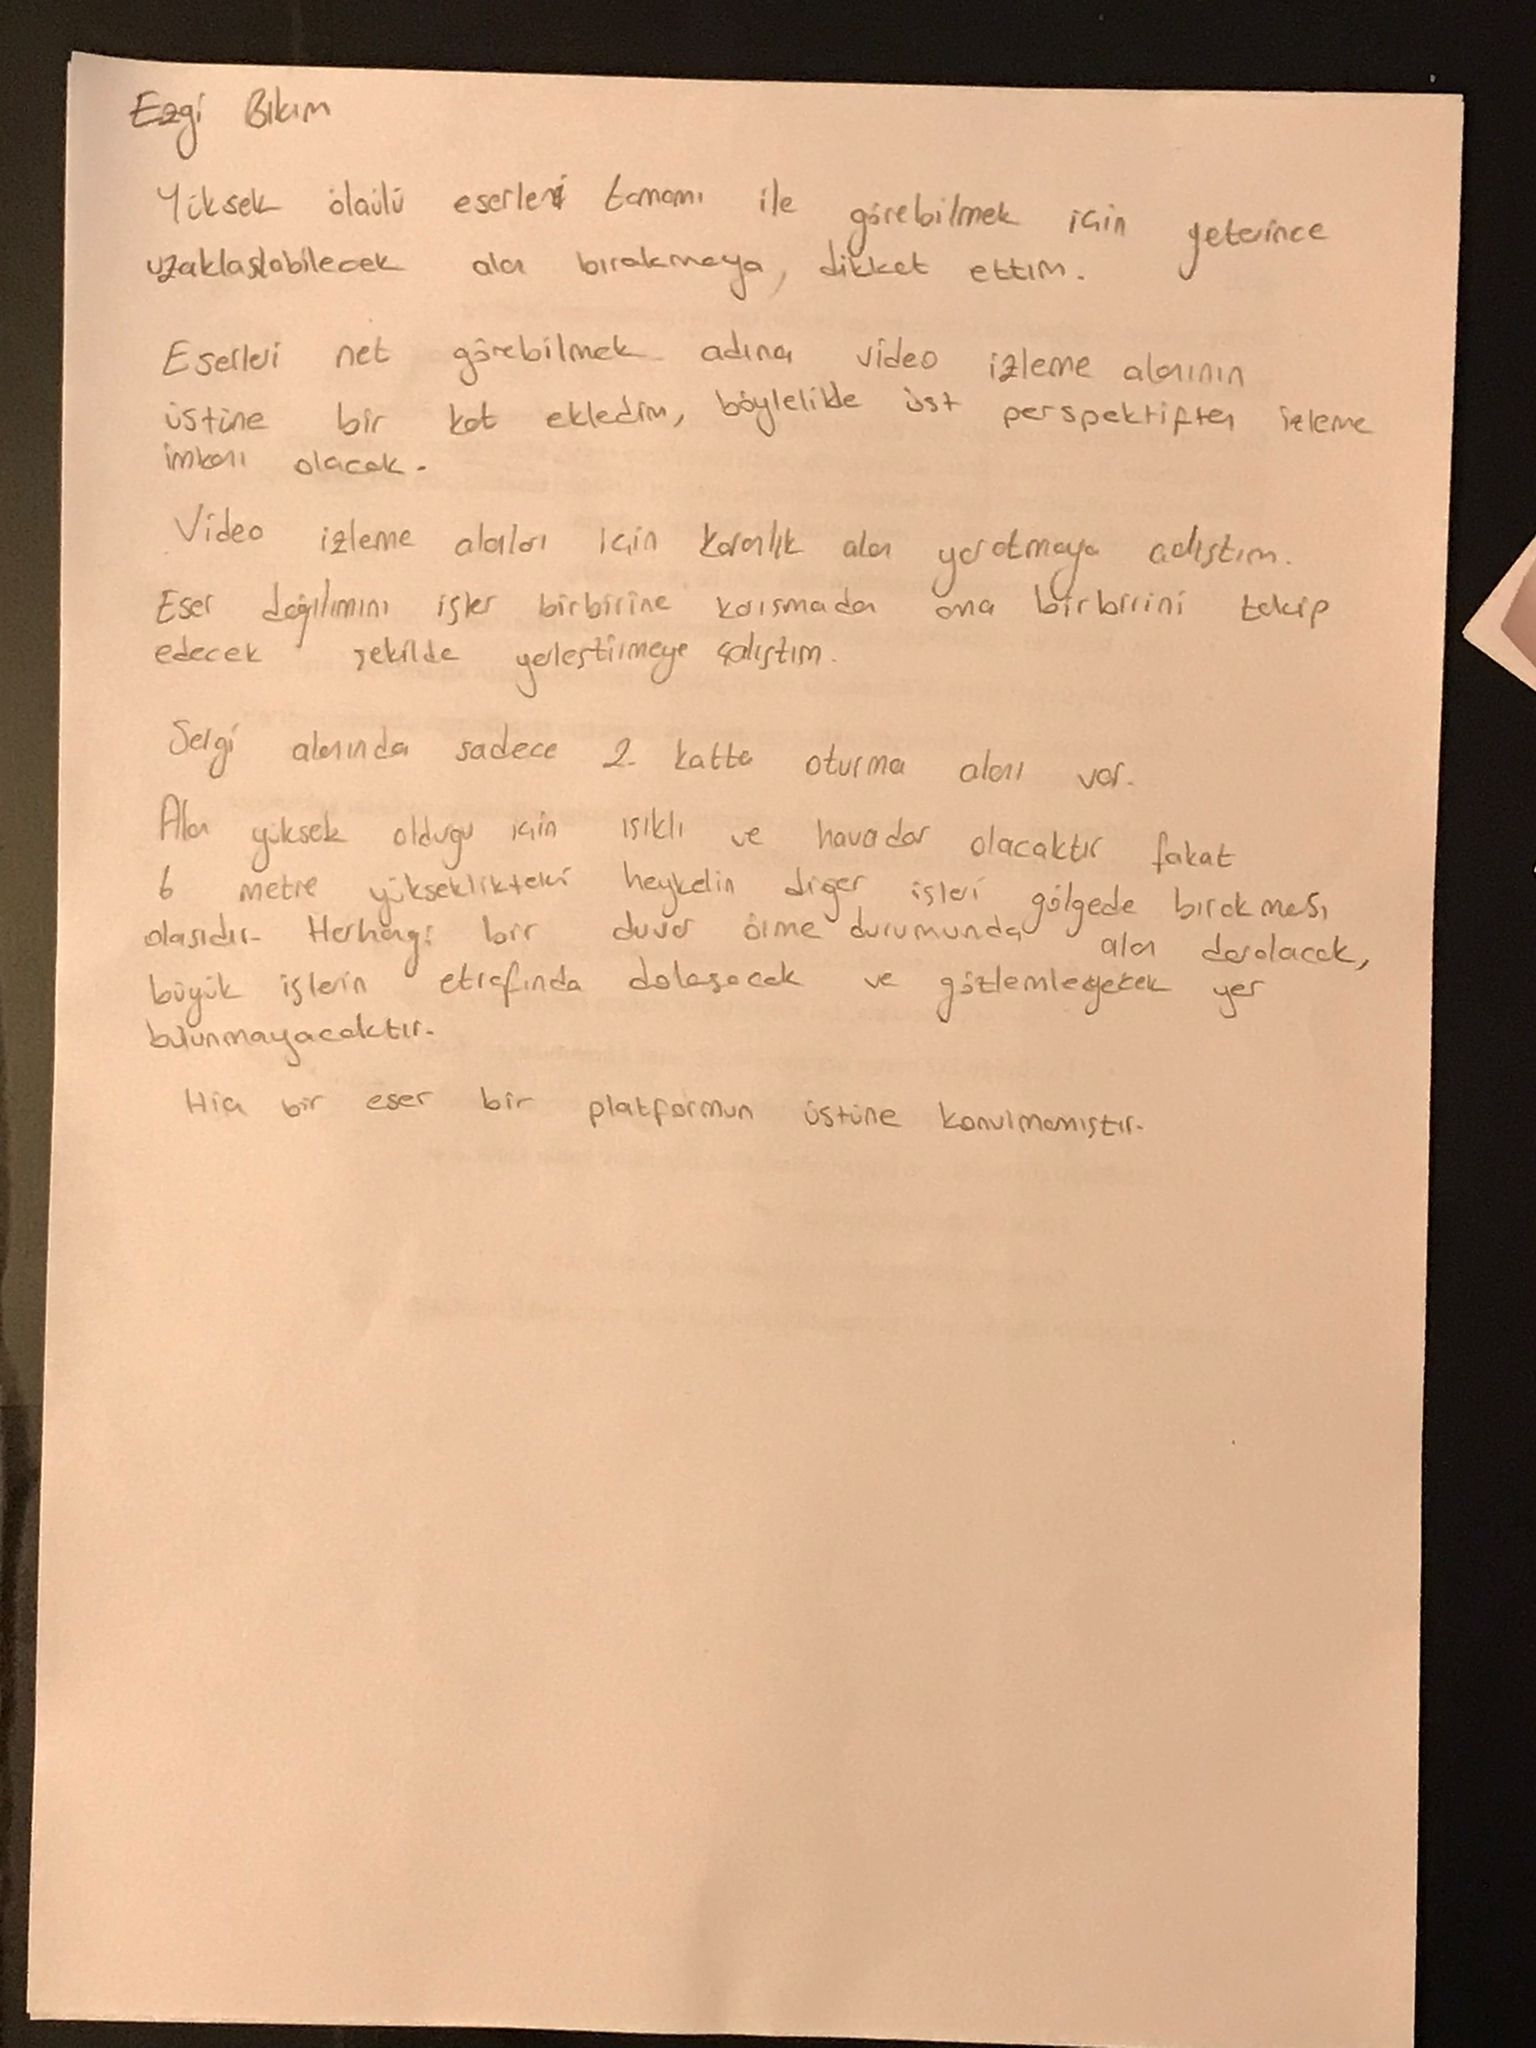 Ezgi Bıkım
Yüksek ölçülü eserleri tamamı ile görebilmek için yeterince
uzaklaşlabilecek alan bırakmaya, dikket ettim.
Eserleri net görebilmek adına video izleme alanının
üstüne bir kat ekledim, böylelikle üst perspektiften izleme
imkanı olacak.
Video izleme alanları için karanlık alan yaratmaya çalıştım.
Eser dağılımını işler birbirine karışmadan ama birbirini takip
edecek şekilde yerleştirmeye çalıştım.
Sergi alanında sadece 2. katta oturma alanı var.
Alan yüksek olduğu için ışıklı ve havadar olacaktır fakat
6 metre yükseklikteki heykelin diğer işleri gölgede bırakması
olasıdır. Herhangi bir duvar örme durumunda alan daralacak,
büyük işlerin etrafında dolaşacak ve gözlemleyecek yer
bulunmayacaktır.
Hiç bir eser bir platformun üstüne konulmamıştır.